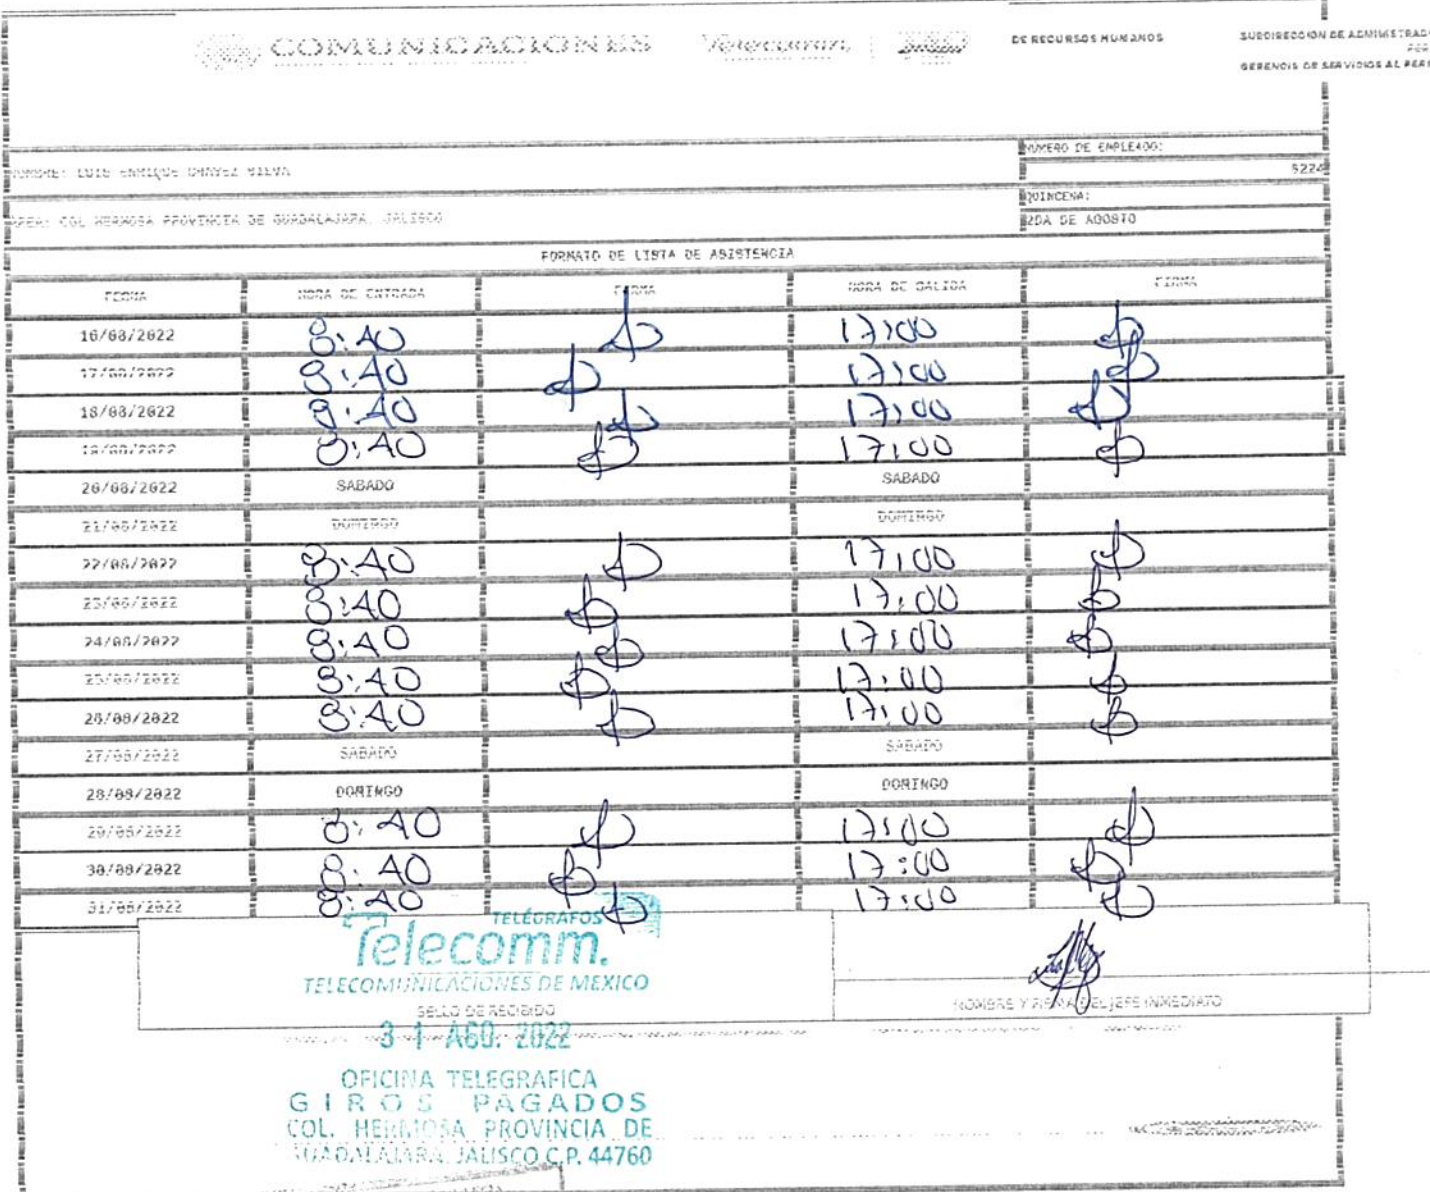 COMUNICACIONES Telecomm.
DE RECURSOS HUMANOS
SUBDIRECCION DE ADMINISTRAC
PER
GERENCIA DE SERVICIOS AL PERS
NOMBRE: LUIS ENRIQUE CHAVEZ SILVA
NUMERO DE EMPLEADO:
5224
AREA: COL HERMOSA PROVINCIA DE GUADALAJARA, JALISCO
QUINCENA:
2DA DE AGOSTO
FORMATO DE LISTA DE ASISTENCIA
FECHA HORA DE ENTRADA FIRMA HORA DE SALIDA FIRMA
16/08/2022 8:40 17:00
17/08/2022 8:40 17:00
18/08/2022 8:40 17:00
19/08/2022 8:40 17:00
20/08/2022 SABADO SABADO
21/08/2022 DOMINGO DOMINGO
22/08/2022 8:40 17:00
23/08/2022 8:40 17:00
24/08/2022 8:40 17:00
25/08/2022 8:40 17:00
26/08/2022 8:40 17:00
27/08/2022 SABADO SABADO
28/08/2022 DOMINGO DOMINGO
29/08/2022 8:40 17:00
30/08/2022 8:40 17:00
31/08/2022 8:40 17:00
TELÉGRAFOS
Telecomm.
TELECOMUNICACIONES DE MEXICO
SELLO DE RECIBIDO
NOMBRE Y FIRMA DEL JEFE INMEDIATO
31 AGO. 2022
OFICINA TELEGRAFICA
GIROS PAGADOS
COL. HERMOSA PROVINCIA DE
GUADALAJARA, JALISCO C.P. 44760